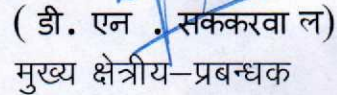 ( डी. एन . सककरवा ल)
मुख्य क्षेत्रीय–प्रबन्धक